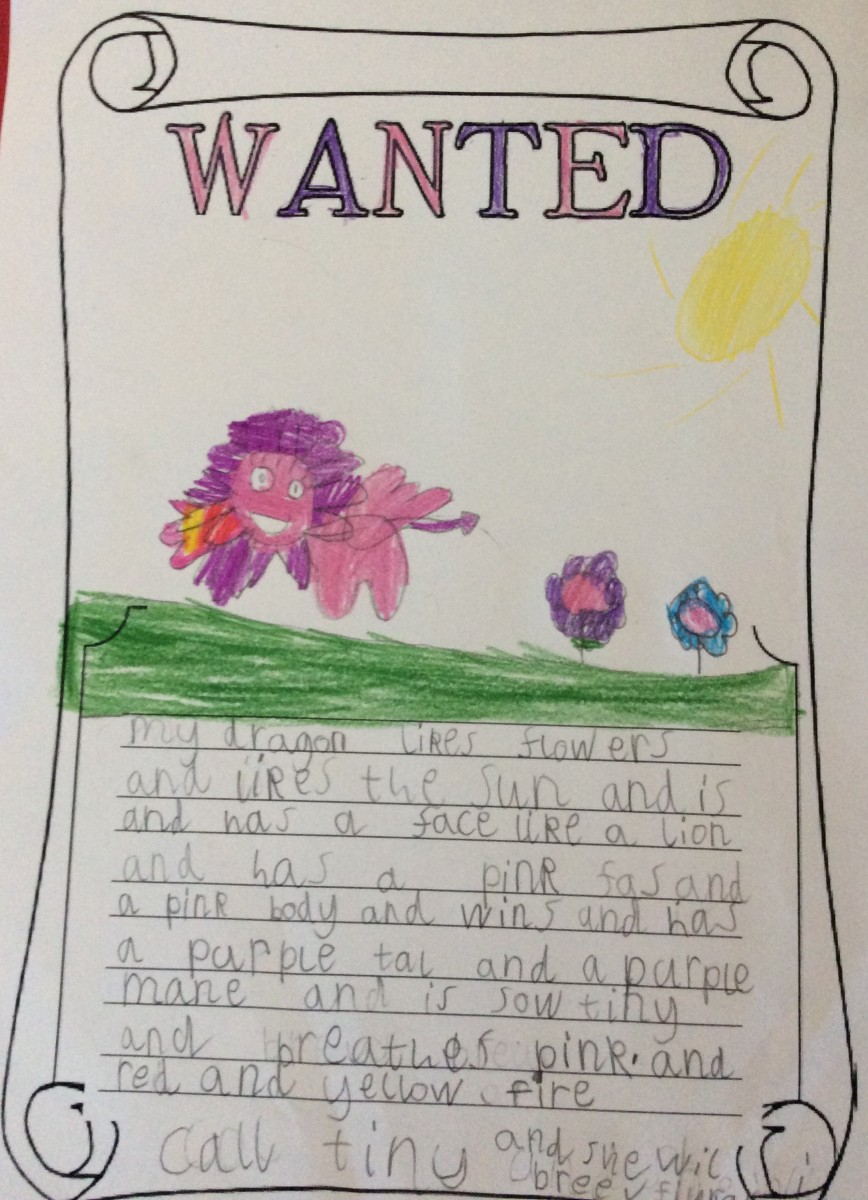 WANTED
my dragon likes flowers
and likes the sun and is
and has a face like a lion
and has a pink fas and
a pink body and wins and has
a purple tal and a purple
mane and is sow tiny
and breathes pink. and
red and yellow fire
call tiny and she wil
bree